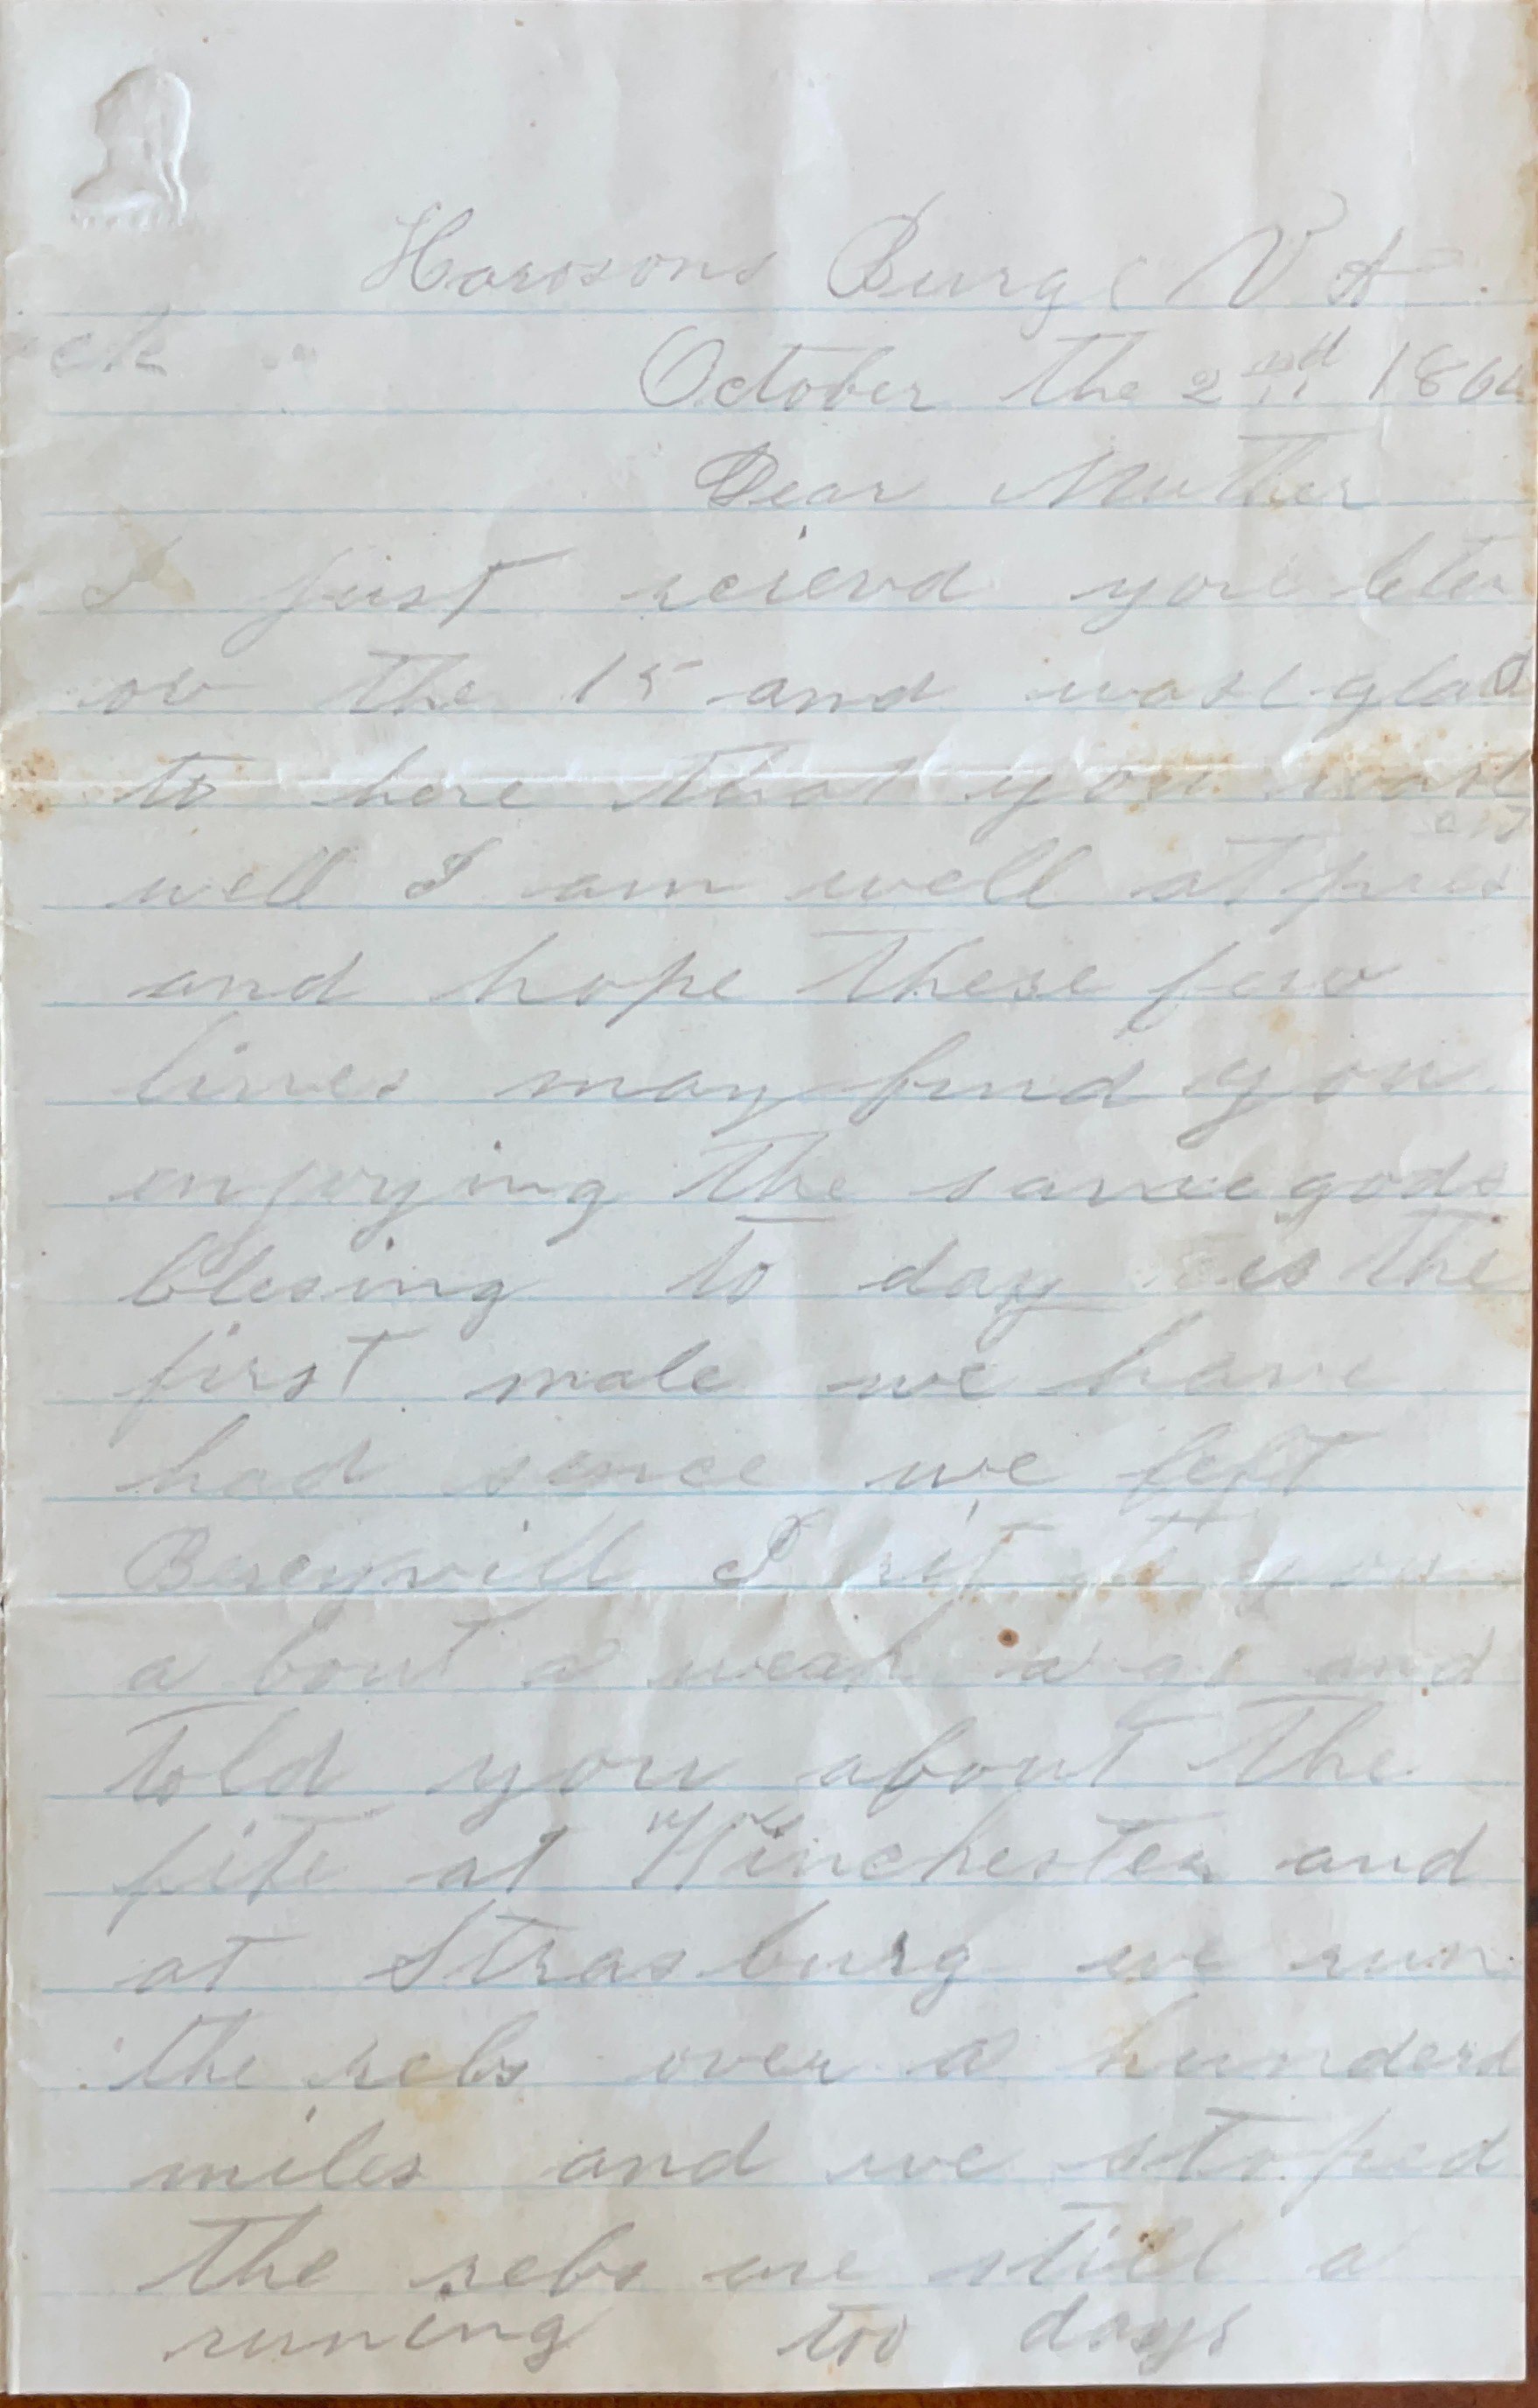 Harosons Burg VA
October the 2nd 1864
Dear Muther
I just reievd your leter
ov the 15 and wase glad
to here that you wase
well I am well at present
and hope these few
lines may find you
enjoying the same gods
blesing to day is the
first male we have
had sence we left
Bereyvill I you
a bout a weak a go and
told you about the
fite at Winchester and
at Strasburg we run
the rebs over a hunderd
miles and we stoped
the rebs are still a
runing too days